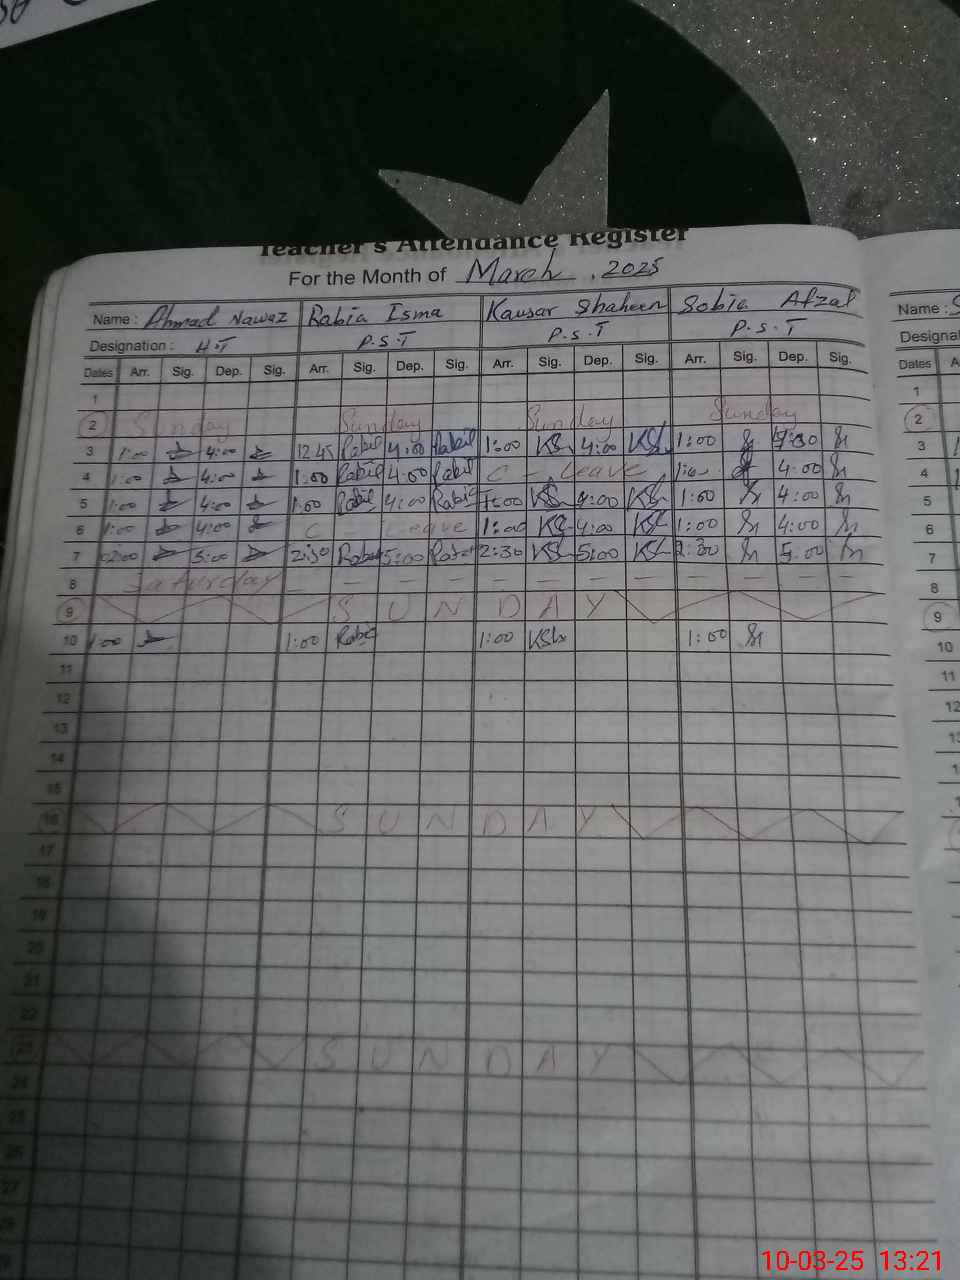 Teacher's Attendance Register
For the Month of March, 2025
Name: Ahmad Nawaz Rabia Isma Kausar Shaheen Sobia Afzal Name: S
Designation: H.T P.S.T P.S.T P.S.T Designat
Dates Arr. Sig. Dep. Sig. Arr. Sig. Dep. Sig. Arr. Sig. Dep. Sig. Arr. Sig. Dep. Sig. Dates A
1 1
2 Sunday Sunday Sunday Sunday 2
3 1:00 4:00 12:45 Rabil 4:00 Rabil 1:00 KS 4:00 KSh 1:00 Sr Sr 3
4 1:00 4:00 1:00 Rabil 4:00 Rabil C - Leave 4:00 Sr 4
5 1:00 4:00 1:00 Rabil 4:00 Rabia 1:00 KSh 4:00 KSh 1:00 Sr 4:00 Sr 5
6 1:00 4:00 C - Leave 1:00 KS 4:00 KSh 1:00 Sr 4:00 Sr 6
7 02:00 5:00 2:30 5:00 2:30 KSh 5:00 KSh 2:30 Sr 5:00 7
8 Saturday — — — — — — — — — — — — 8
9 SUNDAY 9
10 1:00 1:00 Rabia 1:00 KSh 1:00 Sr 10
11 11
12 12
13
14
15
16 SUNDAY
17
18
19
20
21
22
23 SUNDAY
24
25
26
27
28
10-03-25 13:21